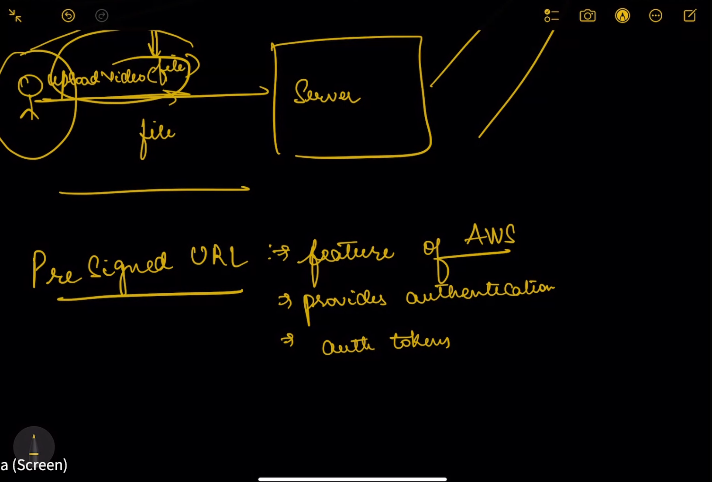 uploadVideo(file)
Server
file
PreSigned URL :→ feature of AWS
→ provides authentication
→ auth tokens
a (Screen)